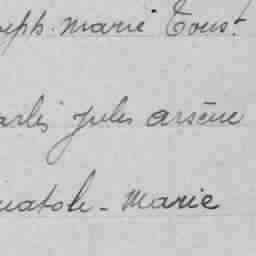 oseph. marie Toust
arles jules arsène
natole - Marie